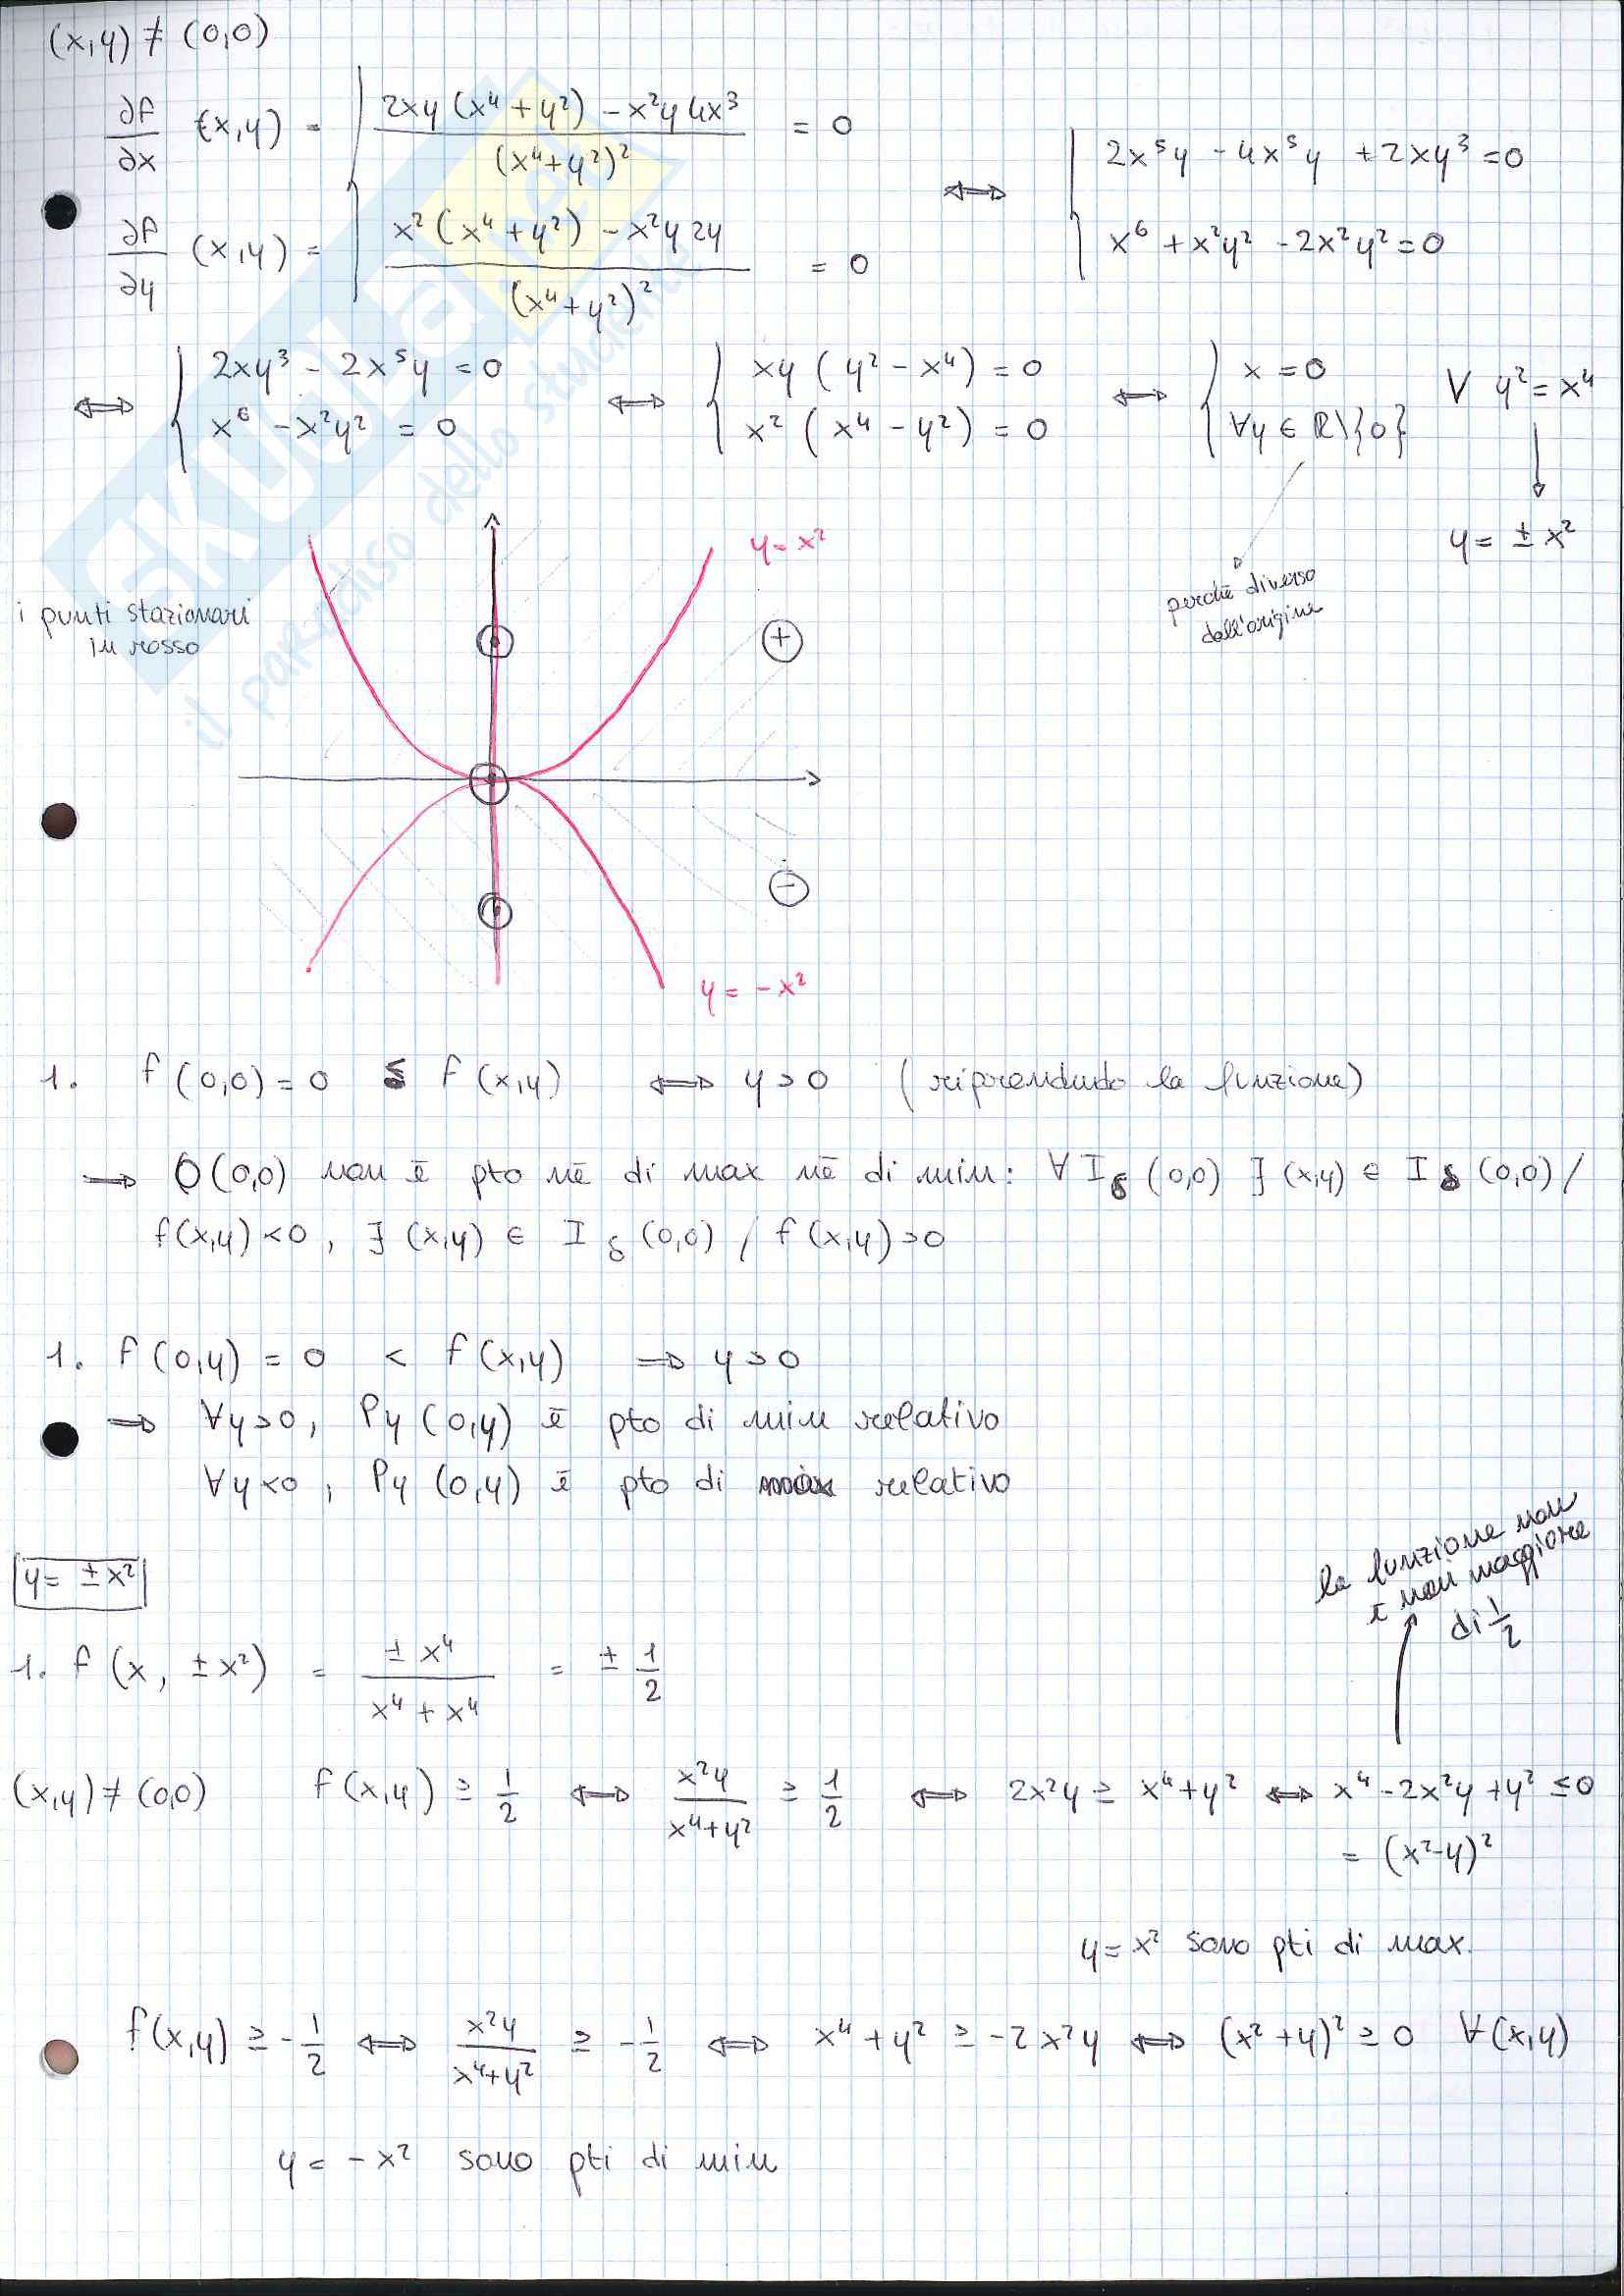 (x,y) ≠ (0,0)
∂f/∂x (x,y) = { (2xy (x⁴ + y²) - x²y 4x³) / (x⁴+y²)² = 0
∂f/∂y (x,y) = { (x² (x⁴ + y²) - x²y 2y) / (x⁴+y²)² = 0
⟺ { 2x⁵y - 4x⁵y + 2xy³ = 0
x⁶ + x²y² - 2x²y² = 0
⟺ { 2xy³ - 2x⁵y = 0
x⁶ - x²y² = 0
⟺ { xy (y² - x⁴) = 0
x² (x⁴ - y²) = 0
⟺ { x = 0
∀y ∈ ℝ\{0}
∨ y² = x⁴
y = ± x²
perché diverso
dall'origine
i punti stazionari
in rosso
y = x²
+
-
y = - x²
1. f(0,0) = 0 ≤ f(x,y) ⟺ y > 0 (riprendendo la funzione)
⟹ O(0,0) non è pto né di max né di min: ∀ I δ (0,0) ∃ (x,y) ∈ I δ (0,0) /
f(x,y) < 0, ∃ (x,y) ∈ I δ (0,0) / f(x,y) > 0
1. f(0,y) = 0 < f(x,y) ⟹ y > 0
⟹ ∀y > 0, Py (0,y) è pto di min relativo
∀y < 0, Py (0,y) è pto di max relativo
la funzione non
è mai maggiore
di 1/2
y = ± x²
1. f(x, ± x²) = ± x⁴ / (x⁴ + x⁴) = ± 1/2
(x,y) ≠ (0,0) f(x,y) ≥ 1/2 ⟺ x²y / (x⁴+y²) ≥ 1/2 ⟺ 2x²y ≥ x⁴ + y² ⟺ x⁴ - 2x²y + y² ≤ 0
= (x²-y)²
y = x² sono pti di max.
f(x,y) ≥ - 1/2 ⟺ x²y / (x⁴+y²) ≥ - 1/2 ⟺ x⁴ + y² ≥ - 2x²y ⟺ (x² + y)² ≥ 0 ∀(x,y)
y = - x² sono pti di min
SKUOLA.net
il paradiso dello studente